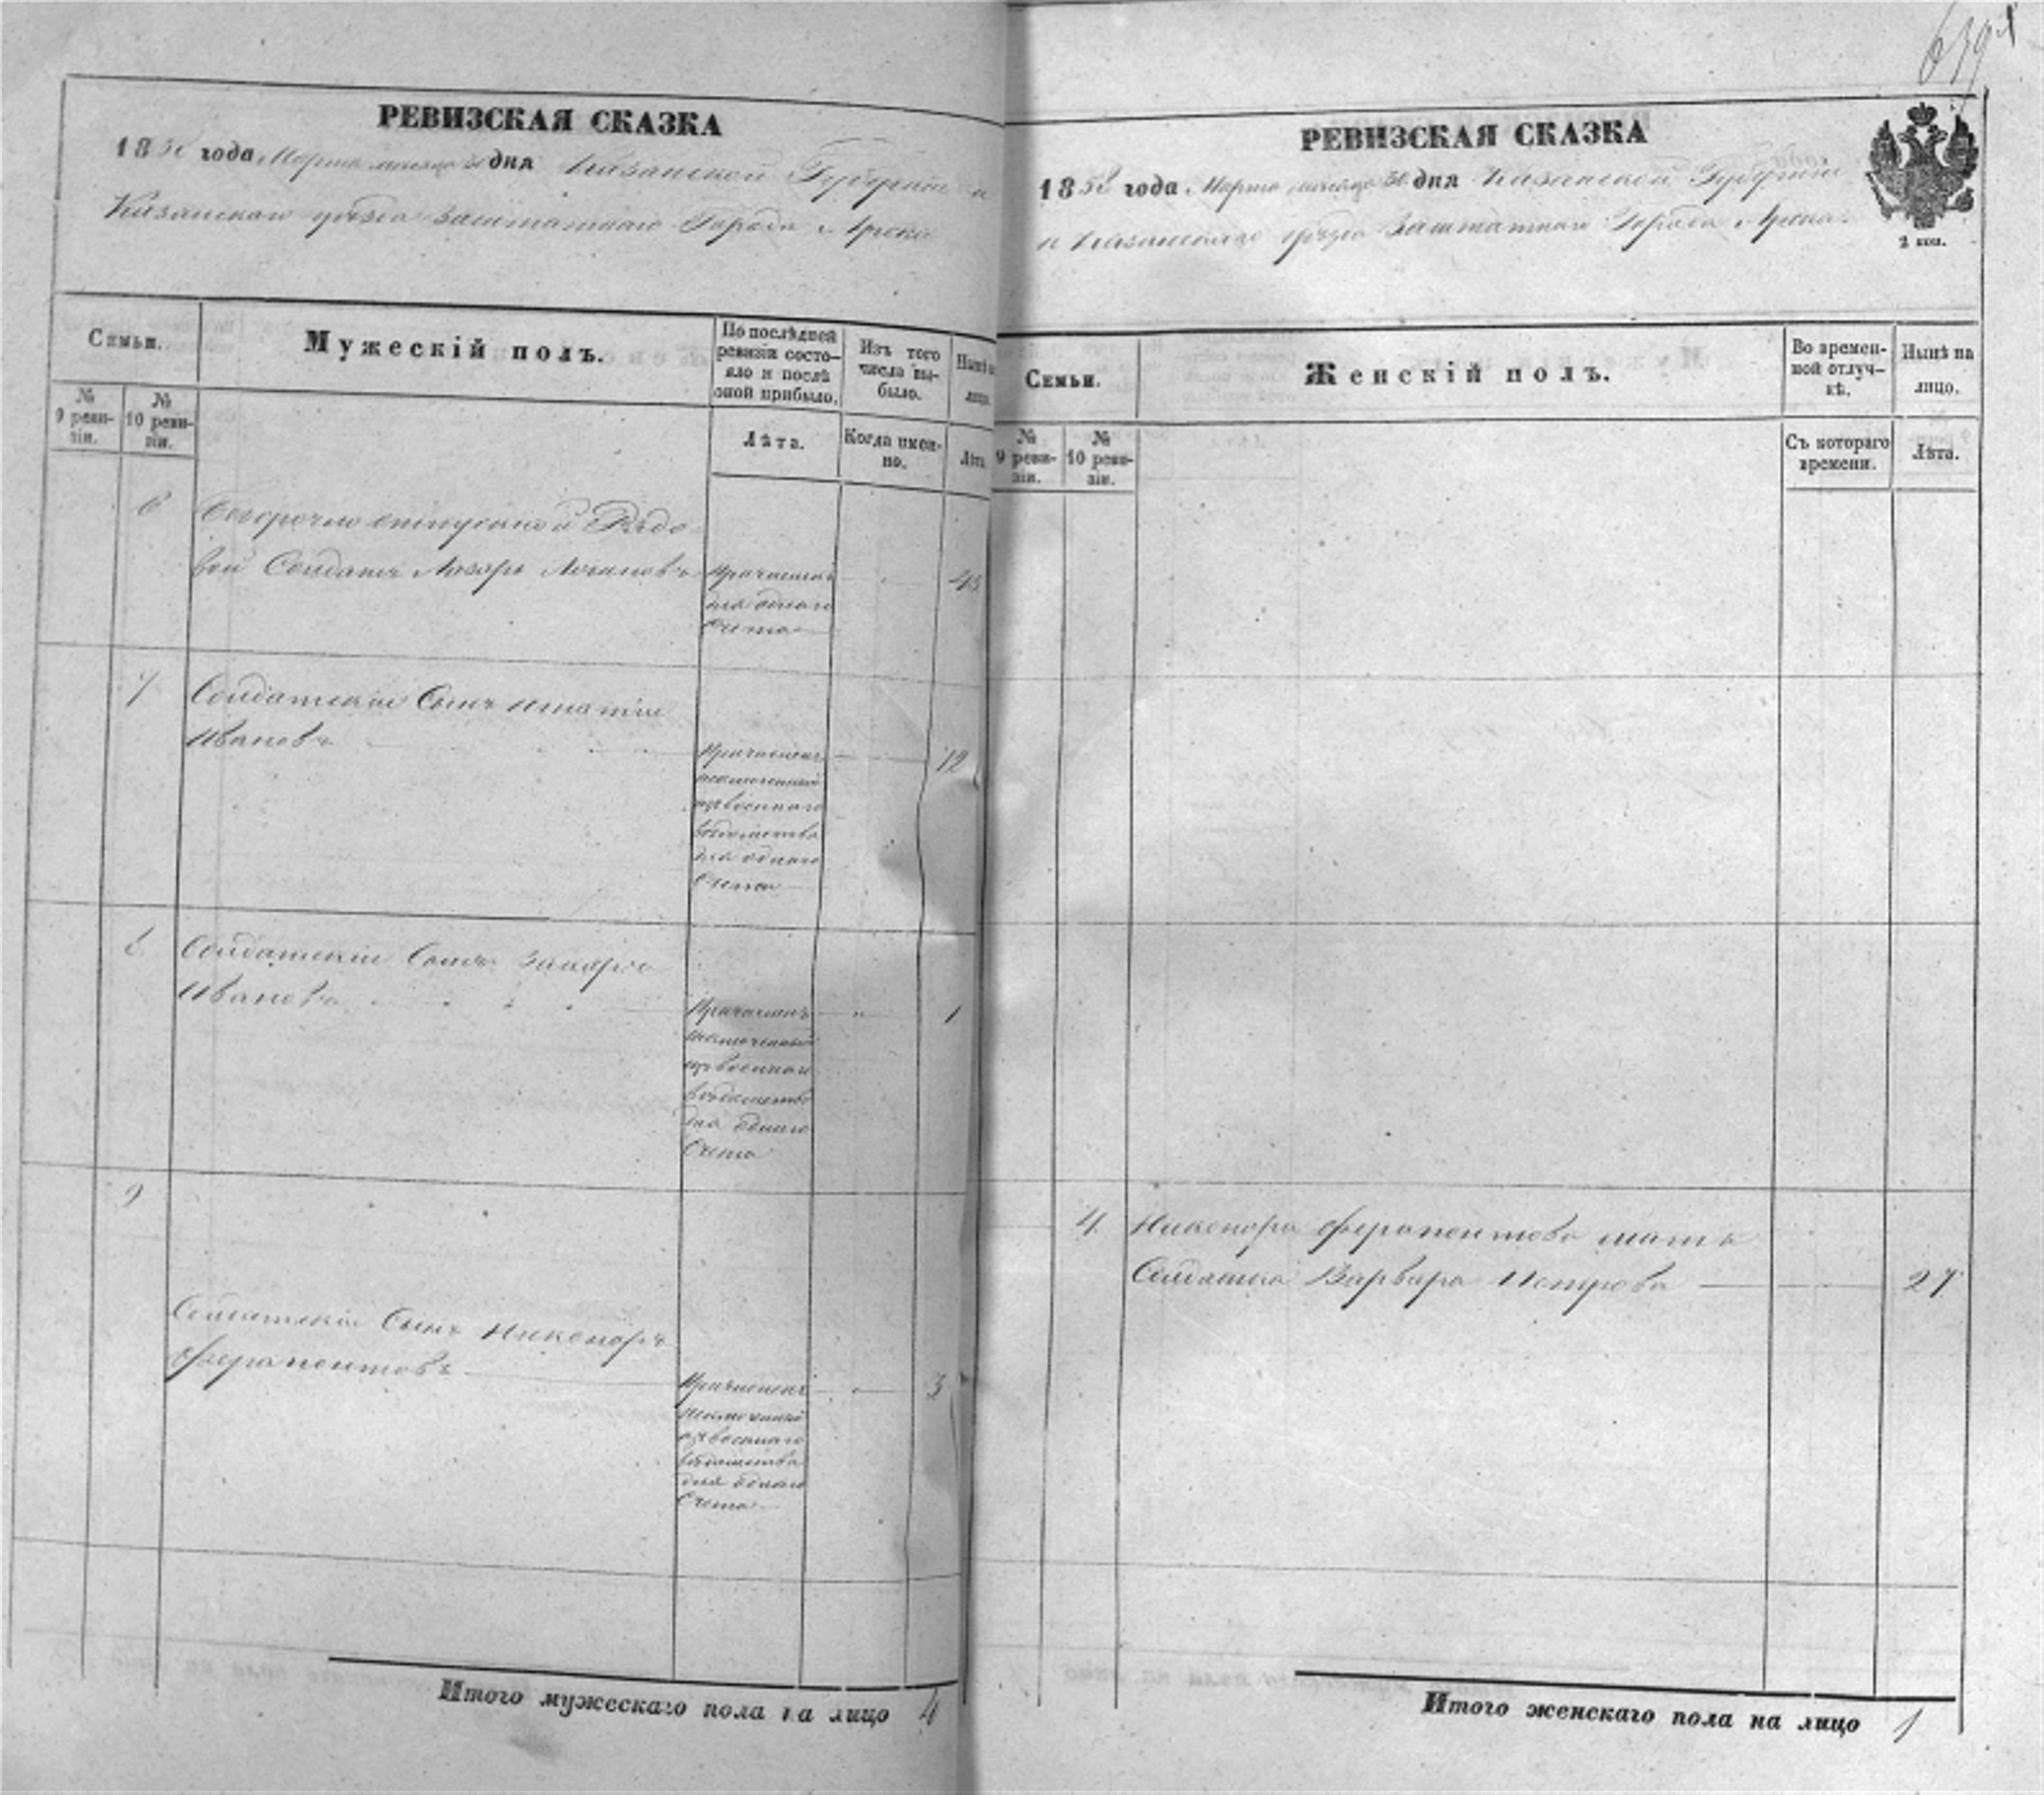 РЕВИЗСКАЯ СКАЗКА
1858 года Марта месяца 30 дня Казанской Губернии и
Казанскаго уезда заштатнаго Города Арска
Семьи.
Мужескій полъ.
По послѣдней ревизіи состояло и послѣ оной прибыло.
Изъ того числа выбыло.
Нынѣ на лицо.
№ 9 ревизіи.
№ 10 ревизіи.
Лѣта.
Когда именно.
Лѣта.
6 Безсрочно отпускной Рядо-
вой Солдатъ Лазарь Логиновъ
Причисленъ
для однаго
счета
45
7 Солдатскій Сынъ Игнатій
Ивановъ
Причисленъ
изъ военнаго
ведомства
для однаго
счета
12
8 Солдатскій Сынъ Захаръ
Ивановъ
Причисленъ
изъ военнаго
ведомства
для однаго
Счета
1
9
Солдатскій Сынъ Никоноръ
Ферапонтовъ
Причисленъ
изъ военнаго
ведомства
для однаго
Счета
3
Итого мужескаго пола на лицо 4
639
РЕВИЗСКАЯ СКАЗКА
1858 года Марта месяца 30 дня Казанской Губернии
и Казанскаго уезда Заштатнаго Города Арска
2 коп.
Семьи.
Женскій полъ.
Во временной отлучкѣ.
Нынѣ на лицо.
№ 9 ревизіи.
№ 10 ревизіи.
Съ котораго времени.
Лѣта.
4 Никонора Ферапонтова мать
Солдатка Варвара Петрова
27
Итого женскаго пола на лицо 1